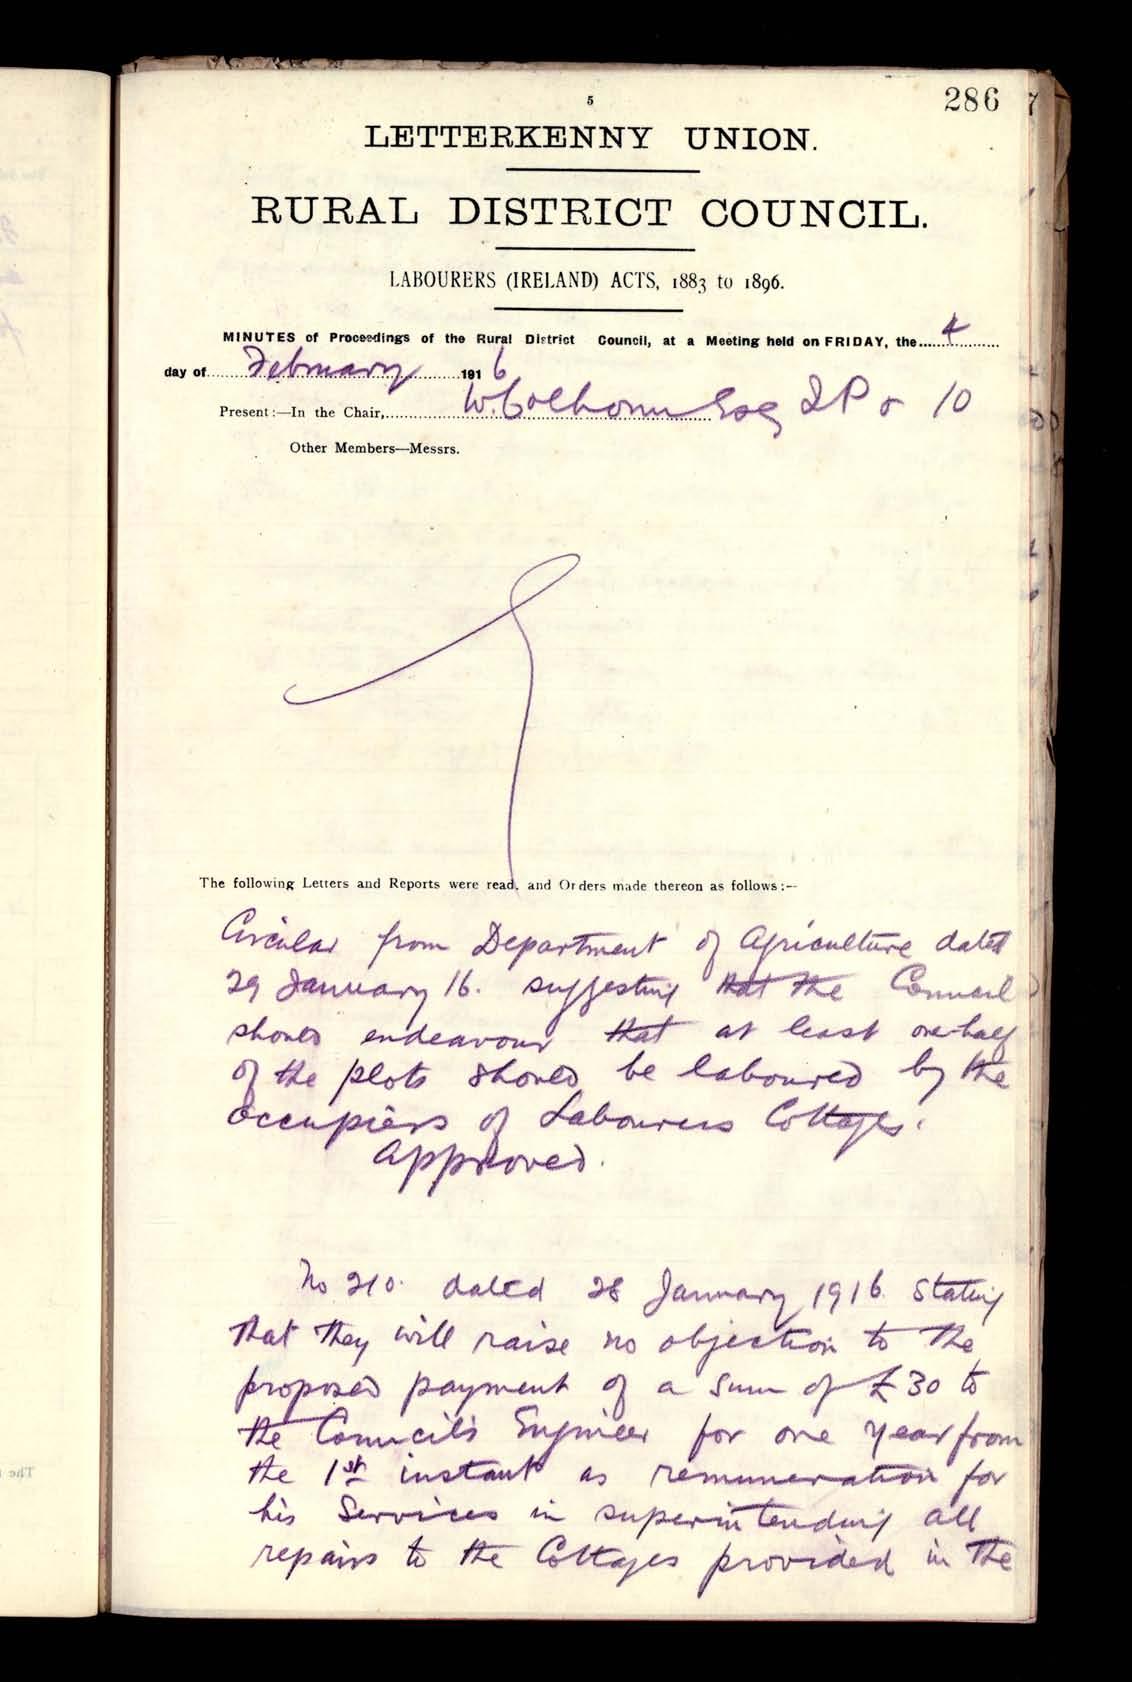 286
5
LETTERKENNY UNION.
RURAL DISTRICT COUNCIL.
LABOURERS (IRELAND) ACTS, 1883 to 1896.
MINUTES of Proceedings of the Rural District Council, at a Meeting held on FRIDAY, the 4
day of February 1916
Present:—In the Chair, W. Colhoun Esq JP & 10
Other Members—Messrs.
The following Letters and Reports were read, and Orders made thereon as follows:—
Circular from Department of Agriculture dated
29 January 16. suggesting that the Council
should endeavour that at least one-half
of the plots should be laboured by the
occupiers of Labourers Cottages.
Approved.
No 210. dated 28 January 1916 stating
that they will raise no objection to the
proposed payment of a sum of £30 to
the Council's Engineer for one year from
the 1st instant as remuneration for
his services in superintending all
repairs to the Cottages provided in the